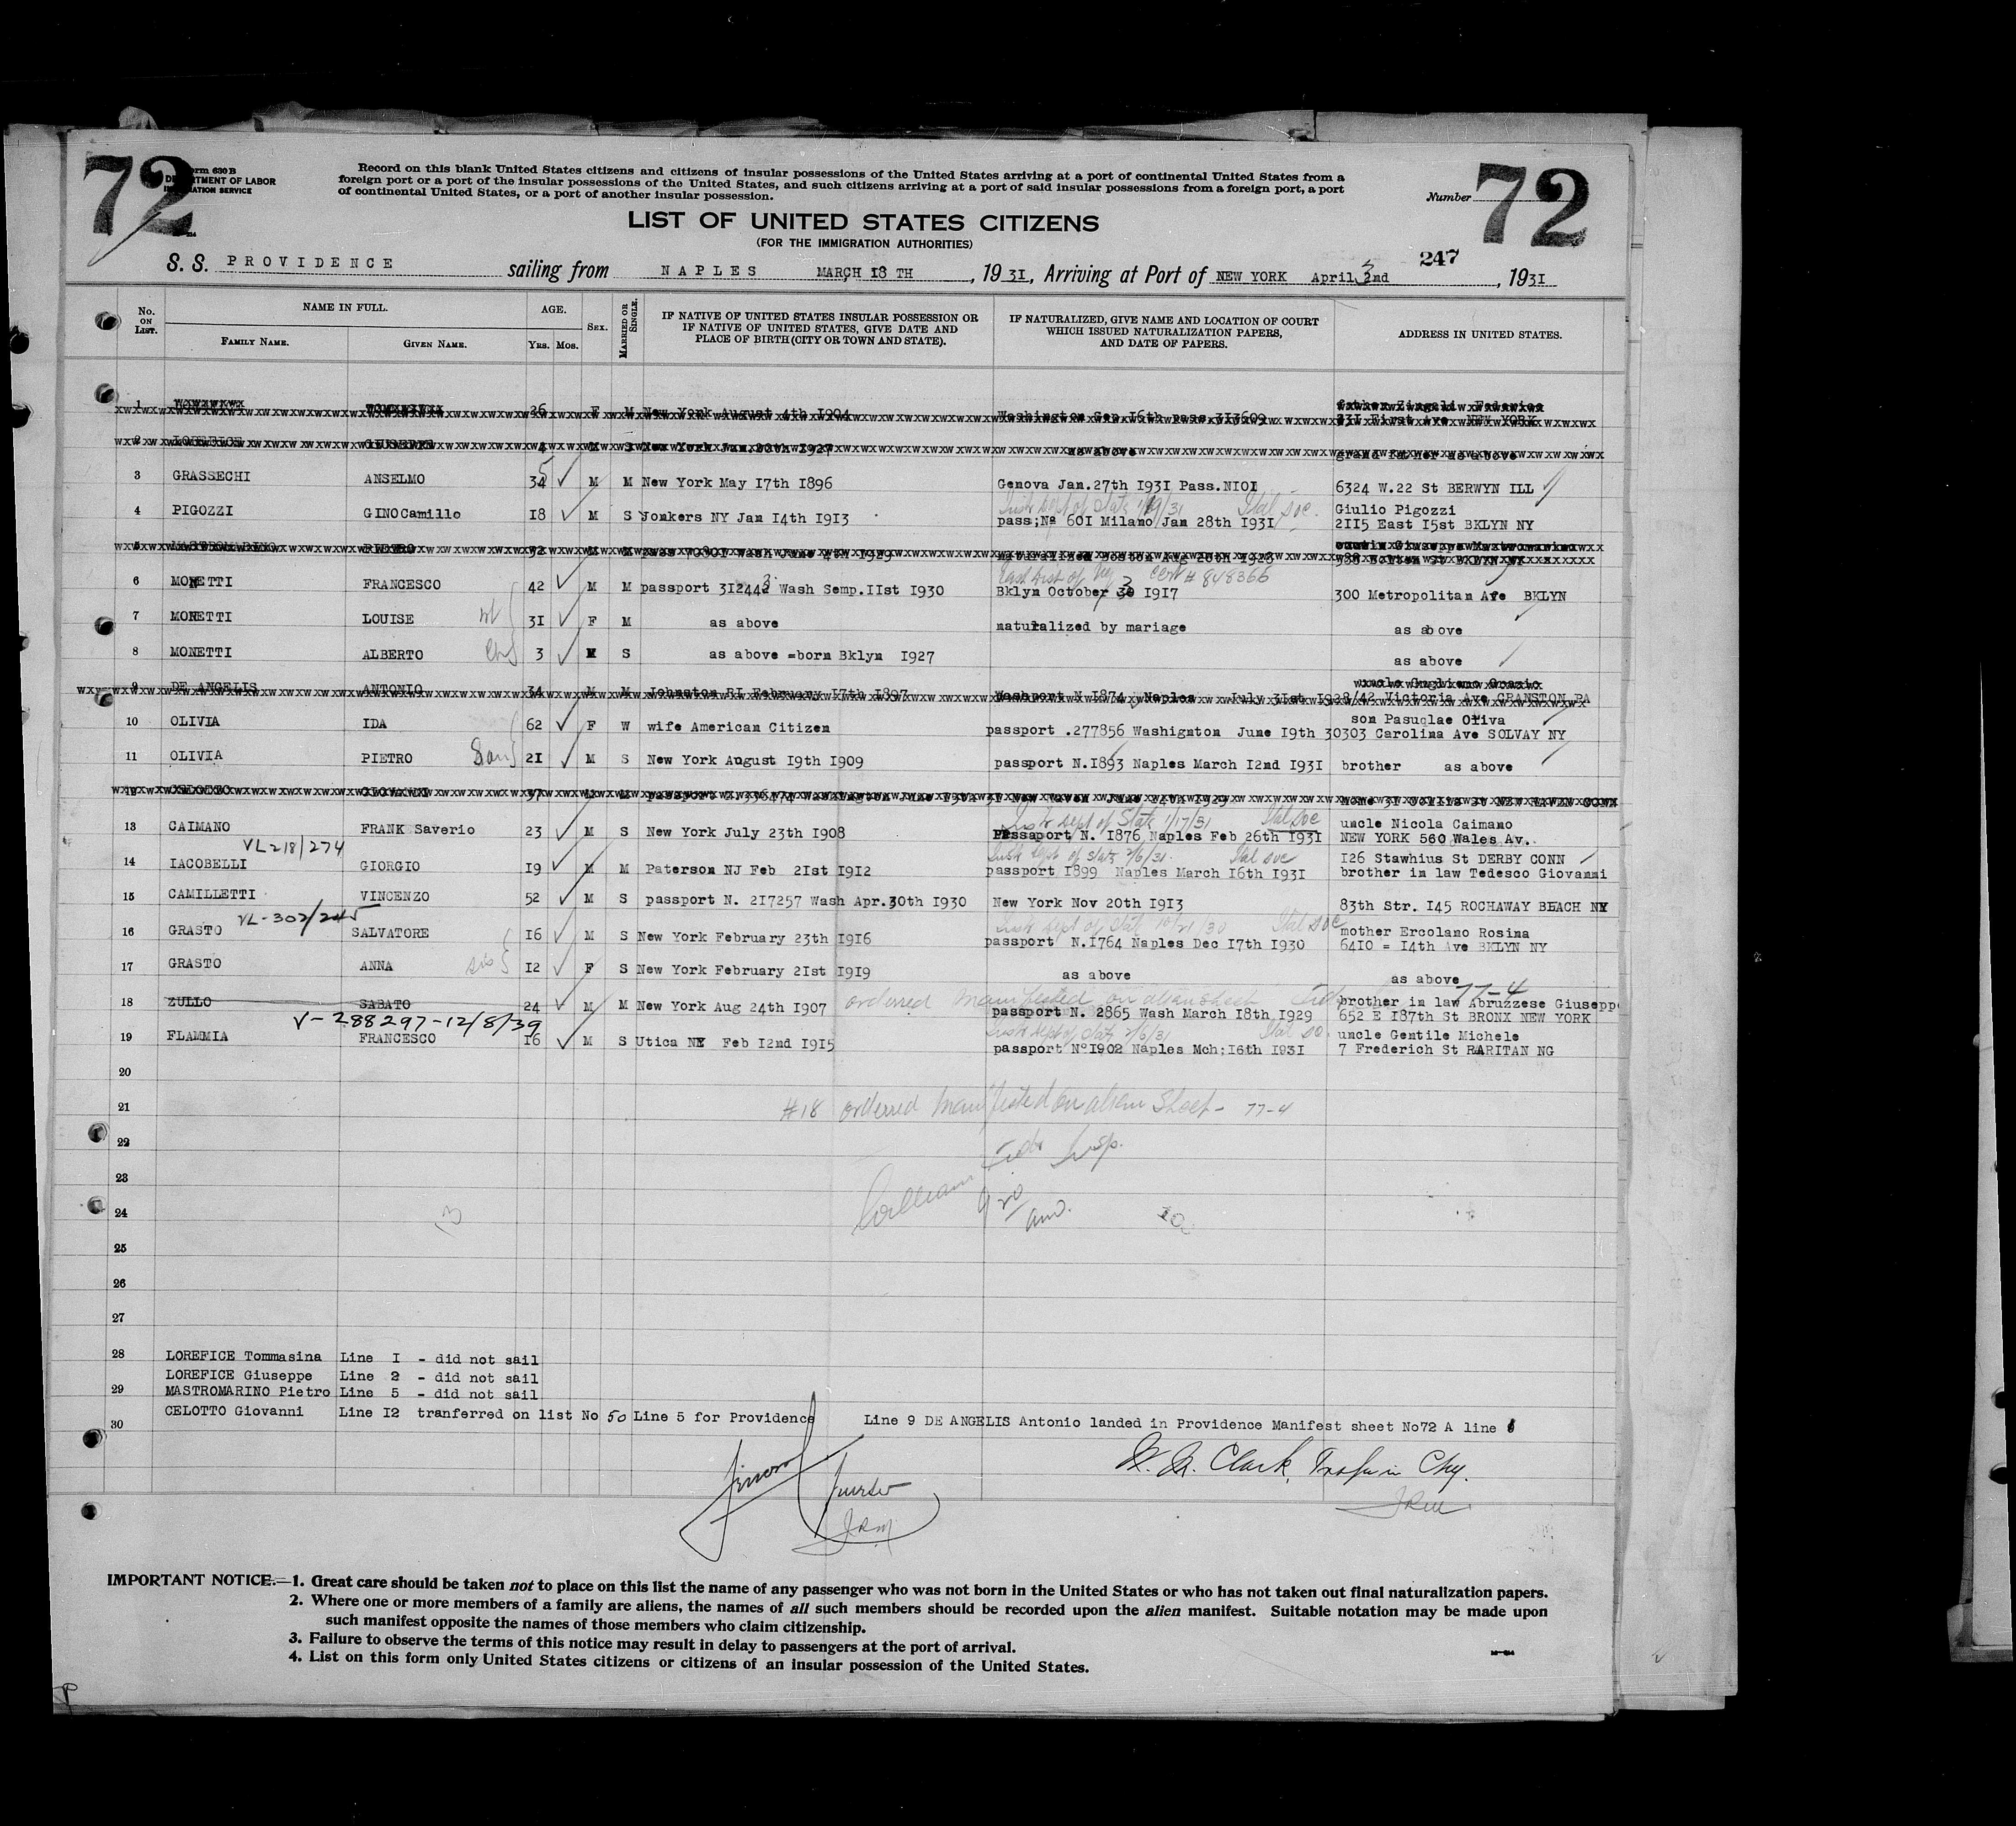 72
Form 630 B
DEPARTMENT OF LABOR
IMMIGRATION SERVICE
Record on this blank United States citizens and citizens of insular possessions of the United States arriving at a port of continental United States from a
foreign port or a port of the insular possessions of the United States, and such citizens arriving at a port of said insular possessions from a foreign port, a port
of continental United States, or a port of another insular possession.
Number 72
LIST OF UNITED STATES CITIZENS
(FOR THE IMMIGRATION AUTHORITIES)
247
S. S. PROVIDENCE sailing from NAPLES MARCH 18 TH, 1931, Arriving at Port of NEW YORK April 3 2nd, 1931
No. ON LIST. NAME IN FULL. AGE. SEX. MARRIED OR SINGLE. IF NATIVE OF UNITED STATES INSULAR POSSESSION OR IF NATIVE OF UNITED STATES, GIVE DATE AND PLACE OF BIRTH (CITY OR TOWN AND STATE). IF NATURALIZED, GIVE NAME AND LOCATION OF COURT WHICH ISSUED NATURALIZATION PAPERS, AND DATE OF PAPERS. ADDRESS IN UNITED STATES.
FAMILY NAME. GIVEN NAME. YRS. MOS.
1 26 F M New York August 4th I904 Washington Gen I6th pass 3I3609 father Zingali Federico
23I First Ave NEW YORK
2 LOREFICE GIUSEPPE 4 M S New York Jan 20th I927 as above grand father as above
3 GRASSECHI ANSELMO 34 5 M M New York May I7th I896 Genova Jan.27th I93I Pass.NIOI 6324 W.22 St BERWYN ILL
4 PIGOZZI GINOCamillo I8 M S Jonkers NY Jan I4th I9I3 Ital soc. Giulio Pigozzi
pass;Nº 60I Milano Jan 28th I93I 2II5 East I5st BKLYN NY
5 MASTROMARINO PIETRO M M naturalized Boston Aug 20th I928
6 MONETTI FRANCESCO 42 M M passport 3I2442 3 Wash Semp.IIst I930 cert # 848366
Bklyn October 30 3 I9I7 300 Metropolitan Ave BKLYN
7 MONETTI LOUISE 3I F M as above naturalized by mariage as above
8 MONETTI ALBERTO 3 M S as above =born Bklyn I927 as above
9 DE ANGELIS ANTONIO 34 M M Johnston RI February I7th I897 Washport N I874 Naples July 3Ist I928/42 Victoria Ave CRANSTON PA
10 OLIVIA IDA 62 F W wife American Citizen son Pasuqlae Oliva
passport .277856 Washignton June I9th 30303 Carolina Ave SOLVAY NY
11 OLIVIA PIETRO Son 2I M S New York August I9th I909 passport N.I893 Naples March I2nd I93I brother as above
12 CELOTTO GIOVANNI 37 M M
13 CAIMANO FRANK Saverio 23 M S New York July 23th I908 Dept of State 1/17/31 Ital soc uncle Nicola Caimano
Passaport N. I876 Naples Feb 26th I93I NEW YORK 560 Wales Av.
VL218/274
14 IACOBELLI GIORGIO I9 M M Paterson NJ Feb 2Ist I9I2 Dept of State 2/6/31. Ital soc I26 Stawhius St DERBY CONN
passport I899 Naples March I6th I93I brother in law Tedesco Giovanni
15 CAMILLETTI VINCENZO 52 M S passport N. 2I7257 Wash Apr.30th I930 New York Nov 20th I9I3 83th Str. I45 ROCHAWAY BEACH NY
VL-302/245
16 GRASTO SALVATORE I6 M S New York February 23th I9I6 Ital soc mother Ercolano Rosina
passport N.I764 Naples Dec I7th I930 64I0 = I4th Ave BKLYN NY
17 GRASTO ANNA sis I2 F S New York February 2Ist I9I9 as above as above
18 ZULLO SABATO 24 M M New York Aug 24th I907 ordered manifested on alien sheet 77-4 brother in law Abruzzese Giuseppe
passport N. 2865 Wash March I8th I929 652 E I87th St BRONX NEW YORK
V-288297-12/8/39
19 FLAMMIA FRANCESCO I6 M S Utica NY Feb I2nd I9I5 uncle Gentile Michele
passport NºI902 Naples Mch;I6th I93I 7 Frederich St RARITAN NG
20
21 #18 ordered manifested on alien sheet - 77-4
22
23
24
25
26
27
28 LOREFICE Tommasina Line I - did not sail
LOREFICE Giuseppe Line 2 - did not sail
29 MASTROMARINO Pietro Line 5 - did not sail
CELOTTO Giovanni Line I2 tranferred on list No 50 Line 5 for Providence
30 Line 9 DE ANGELIS Antonio landed in Providence Manifest sheet No72 A line
IMPORTANT NOTICE.—1. Great care should be taken not to place on this list the name of any passenger who was not born in the United States or who has not taken out final naturalization papers.
2. Where one or more members of a family are aliens, the names of all such members should be recorded upon the alien manifest. Suitable notation may be made upon
such manifest opposite the names of those members who claim citizenship.
3. Failure to observe the terms of this notice may result in delay to passengers at the port of arrival.
4. List on this form only United States citizens or citizens of an insular possession of the United States.